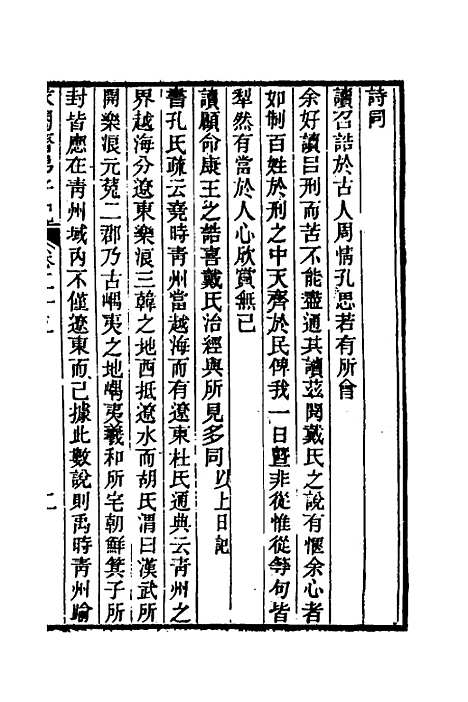 詩同
讀召誥於古人周情孔思若有所會
余好讀呂刑而苦不能盡通其讀茲閱戴氏之說有愜余心者
如制百姓於刑之中天齊於民俾我一日曁非從惟從等句皆
犁然有當於人心欣賞無已
讀顧命康王之誥喜戴氏治經與所見多同以上日記
書孔氏疏云堯時靑州當越海而有遼東杜氏通典云靑州之
界越海分遼東樂浪三韓之地西抵遼水而胡氏渭曰漢武所
開樂浪元菟二郡乃古嵎夷之地嵎夷羲和所宅朝鮮箕子所
封皆應在靑州域內不僅遼東而已據此數說則禹時靑州踰